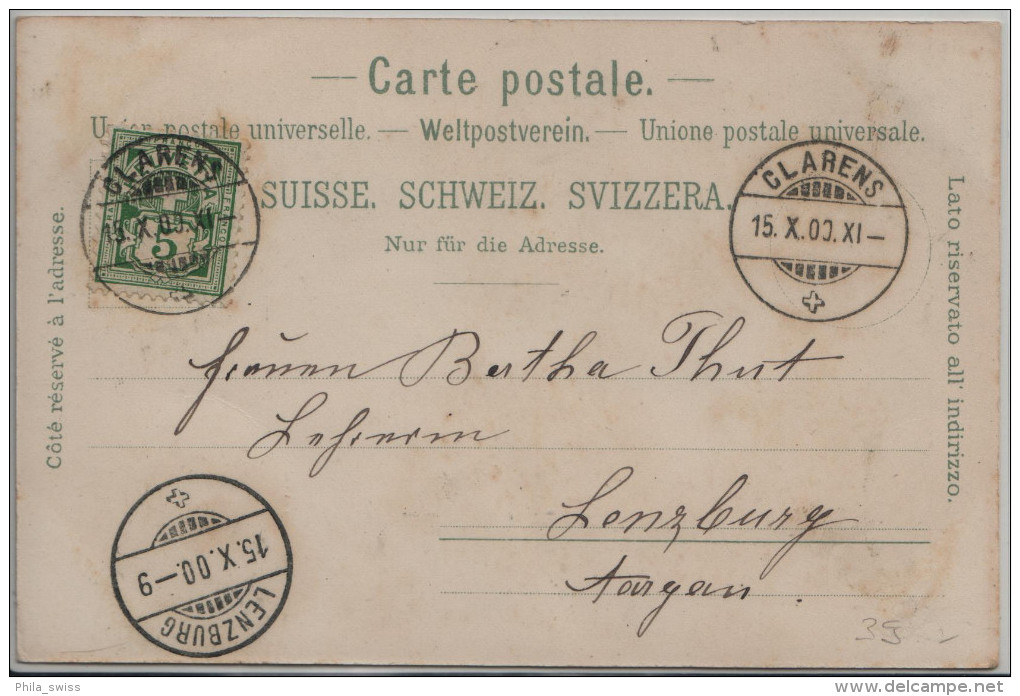 — Carte postale. —
Union postale universelle. — Weltpostverein. — Unione postale universale.
SUISSE. SCHWEIZ. SVIZZERA.
Nur für die Adresse.
Côté réservé à l'adresse.
Lato riservato all' indirizzo.
CLARENS
15. X. 00. XI—
5
CLARENS
15. X. 00. XI—
Bertha Thut
Lehrerin
Lenzburg
Aargau
15. X. 00.—9
LENZBURG
39
Phila_swiss
delcampe.net